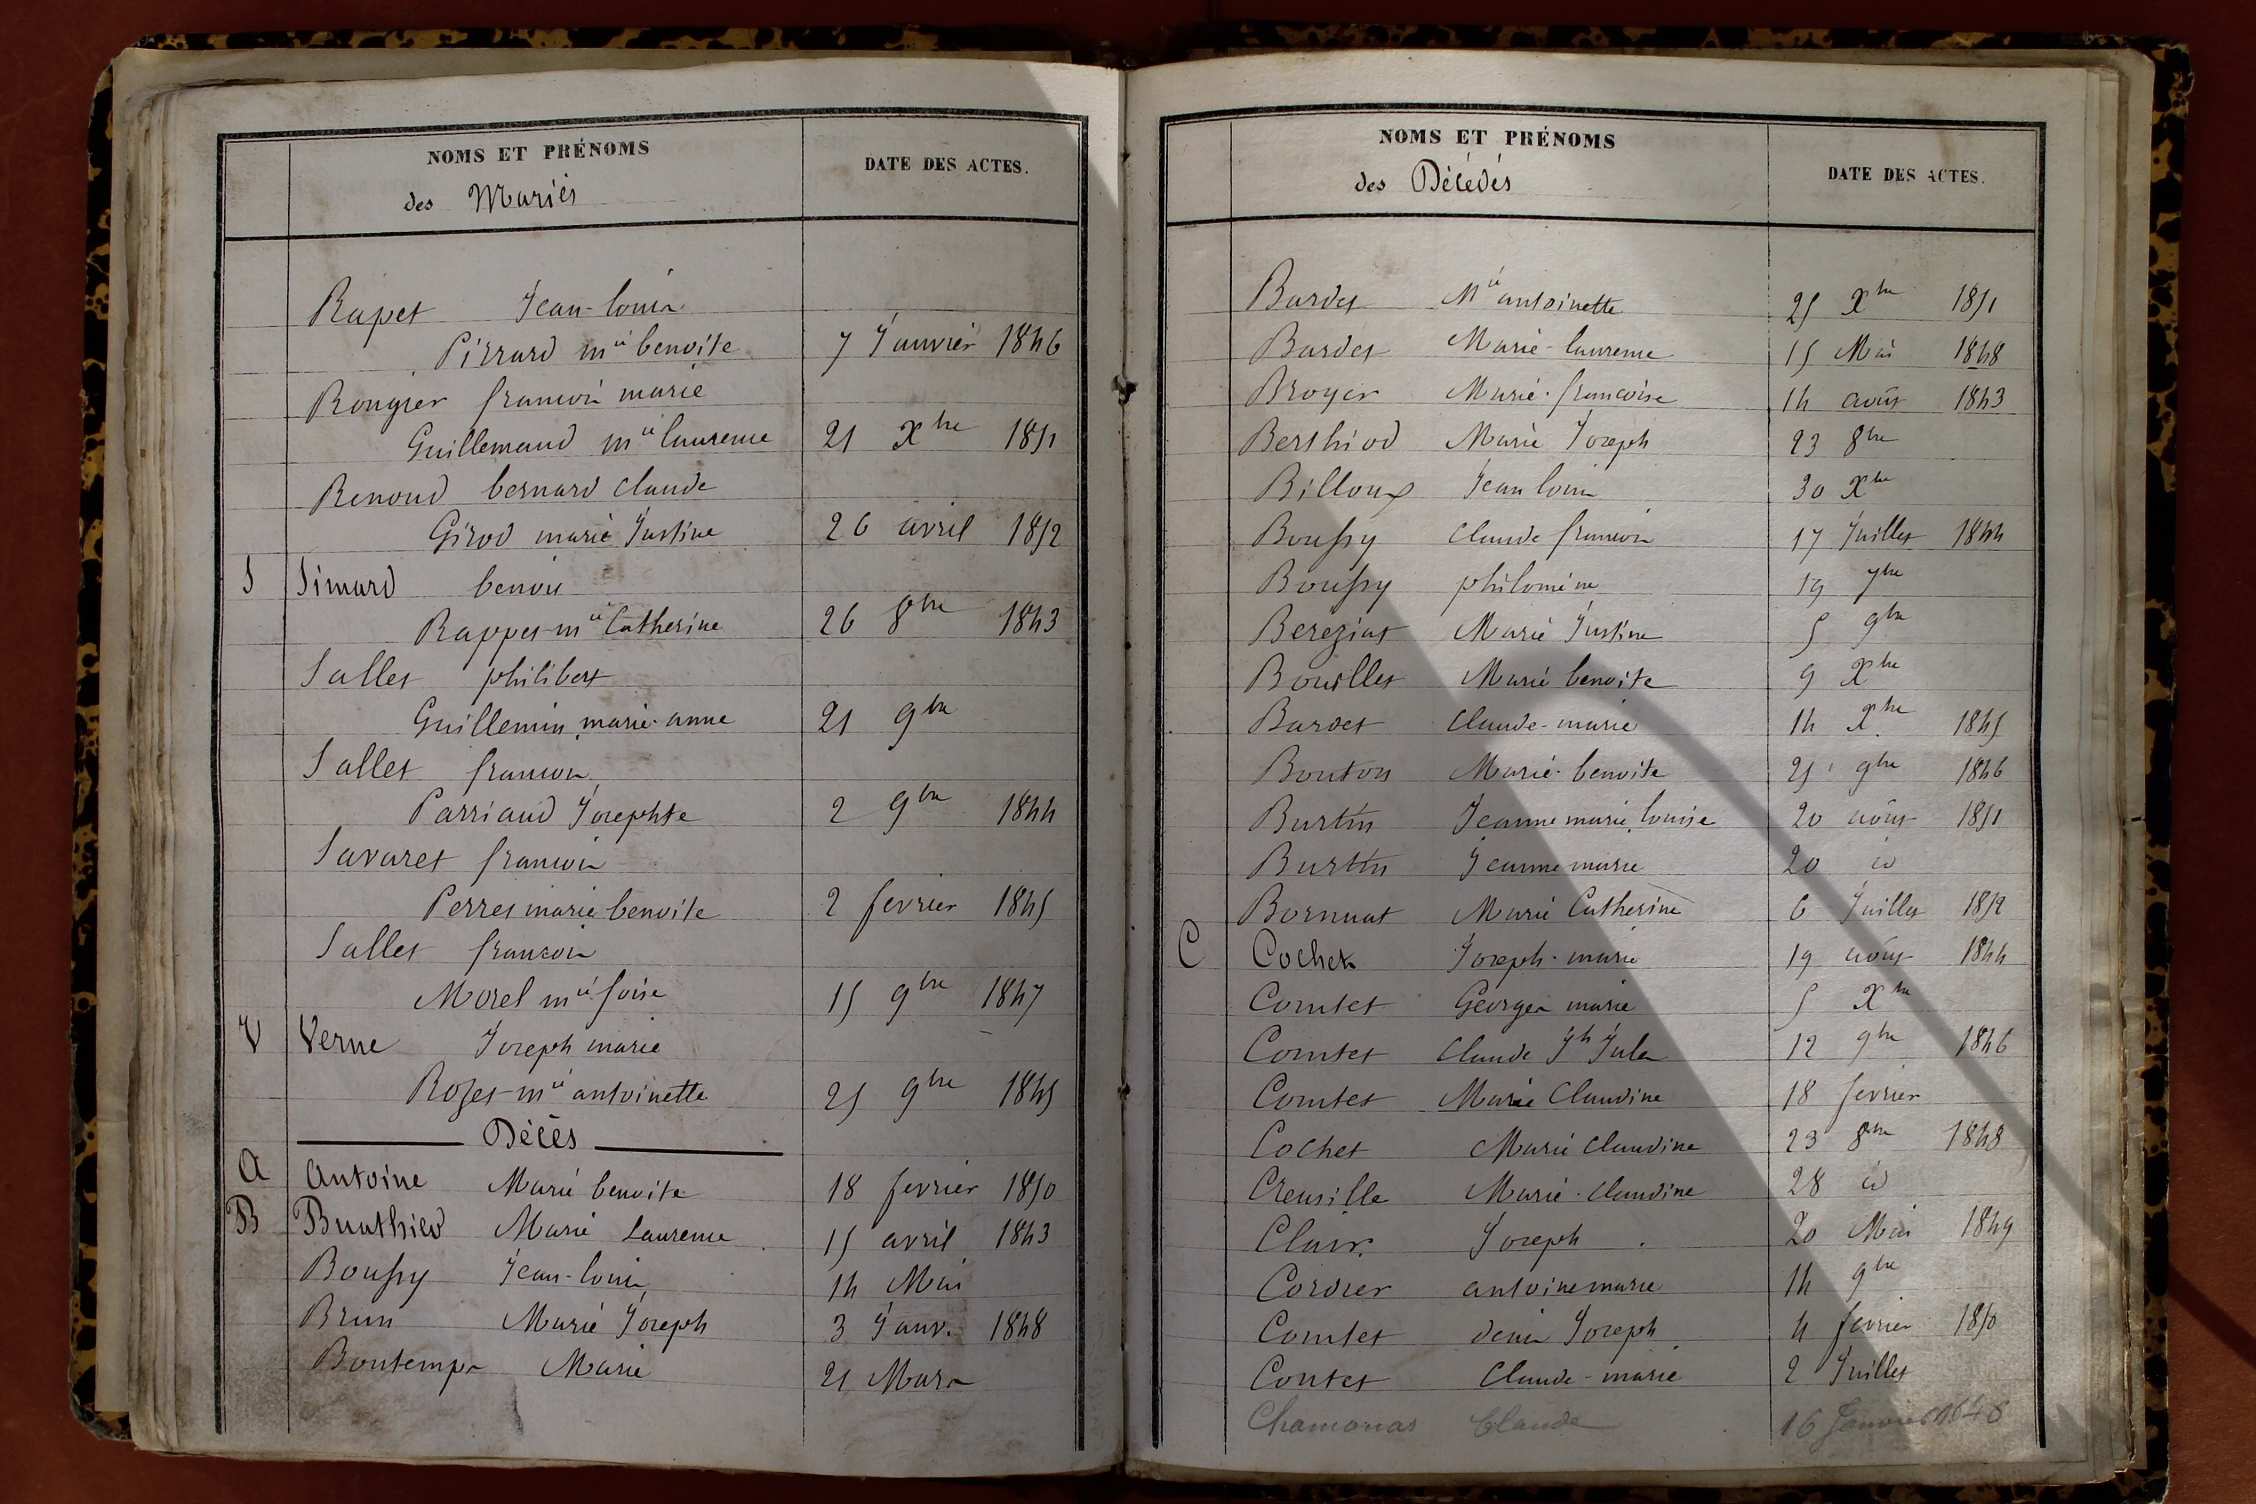 NOMS ET PRÉNOMS
des Mariés
DATE DES ACTES.
Rapet Jean-louis
Pirrard mie benoite 7 Janvier 1846
Rougier francois marie
Guillemaud mie laurence 21 Xbre 1851
Renoud bernard claude
Girod marie Justine 26 avril 1852
S Simard benoit
Rappet mie Catherine 26 8bre 1843
Sallet philibert
Guillemin marie-anne 21 9bre
Sallet francois
Parriaud Josephte 2 9bre 1844
Savaret francois
Perret marie benoite 2 fevrier 1845
Sallet francois
Morel mie foise 15 9bre 1847
V Verne Joseph marie
Roset mie antoinette 25 9bre 1845
Décès
A Antoine Marie benoite 18 fevrier 1850
B Buathied Marie Laurence 15 avril 1843
Boussy Jean-louis 14 Mai
Brun Marie Joseph 3 Janv. 1848
Bontemps Marie 21 Mars
NOMS ET PRÉNOMS
des Décédés
DATE DES ACTES.
Bardet Mie antoinette 25 Xbre 1851
Bardet Marie-laurence 15 Mai 1848
Broyer Marie-francoise 14 août 1843
Berthiod Marie Joseph 23 8bre
Billoux Jean louis 30 Xbre
Boussy Claude francois 17 Juillet 1844
Boussy philomène 19 7bre
Bereziat Marie Justine 5 9bre
Bouillet Marie benoite 9 Xbre
Bardet Claude-marie 14 Xbre 1845
Bouton Marie-benoite 25 9bre 1846
Burtin Jeanne marie louise 20 août 1851
Burtin Jeanne marie 20 id
Bornuat Marie Catherine 6 Juillet 1852
C Cochet Joseph-marie 19 août 1844
Comtet Georges marie 5 Xbre
Comtet Claude Jh Jules 12 9bre 1846
Comtet Marie Claudine 18 fevrier
Cochet Marie Claudine 23 8bre 1848
Creusille Marie-Claudine 28 id
Clair Joseph 20 Mai 1849
Cordier antoine marie 14 9bre
Comtet denis Joseph 4 fevrier 1850
Contet Claude-marie 2 Juillet
Chamonas Claude 16 Janvier 1848